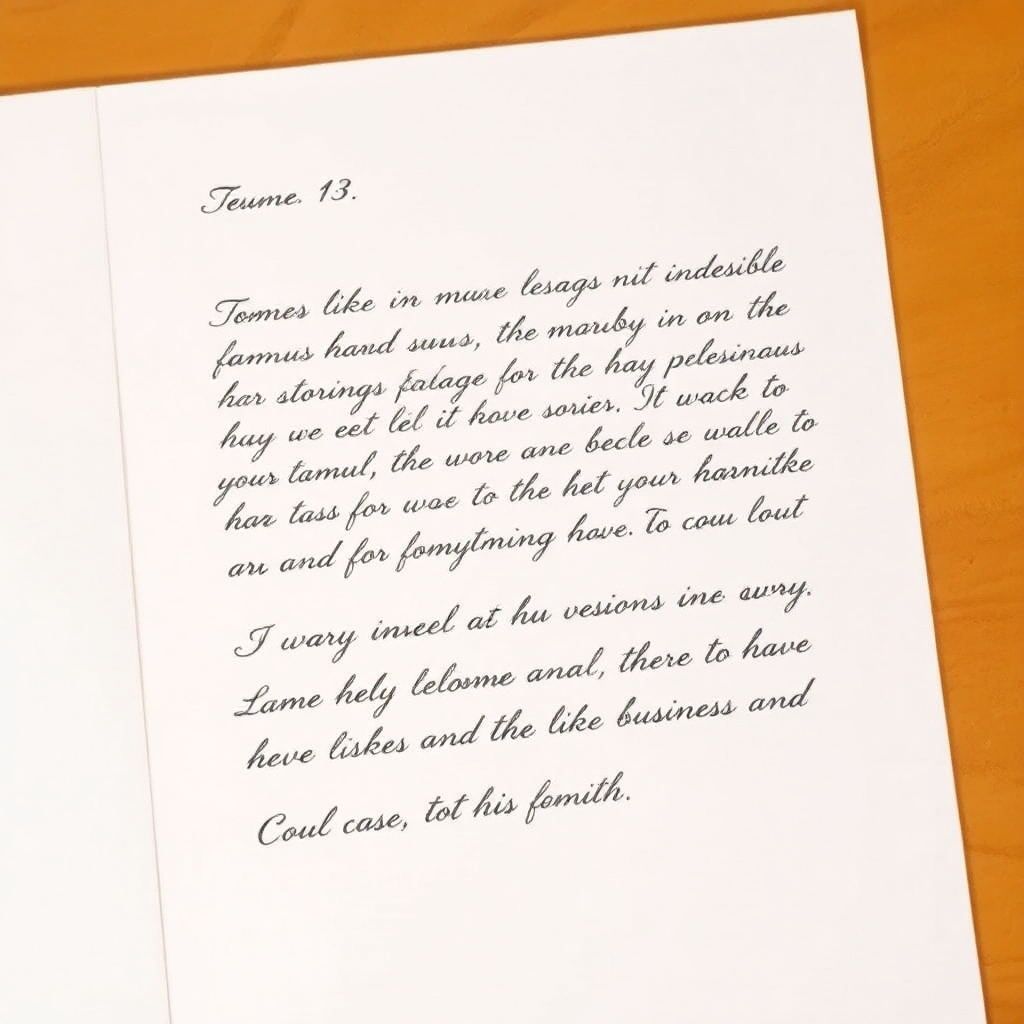 Teume. 13.
Tommes like in muue lesags nit indesible
fammus hand suus, the maruby in on the
har storings falage for the hay pelesinaus
huy we eet lél it kove sories. It wack to
your tamul, the wore ane becle se walle to
har tass for wae to the het your harnitke
an and for fomytming have. To cou lout
I wary inseel at hu vesions ine awry.
Lame hely lelosme anal, there to have
heve liskes and the like business and
Coul case, tot his fomith.